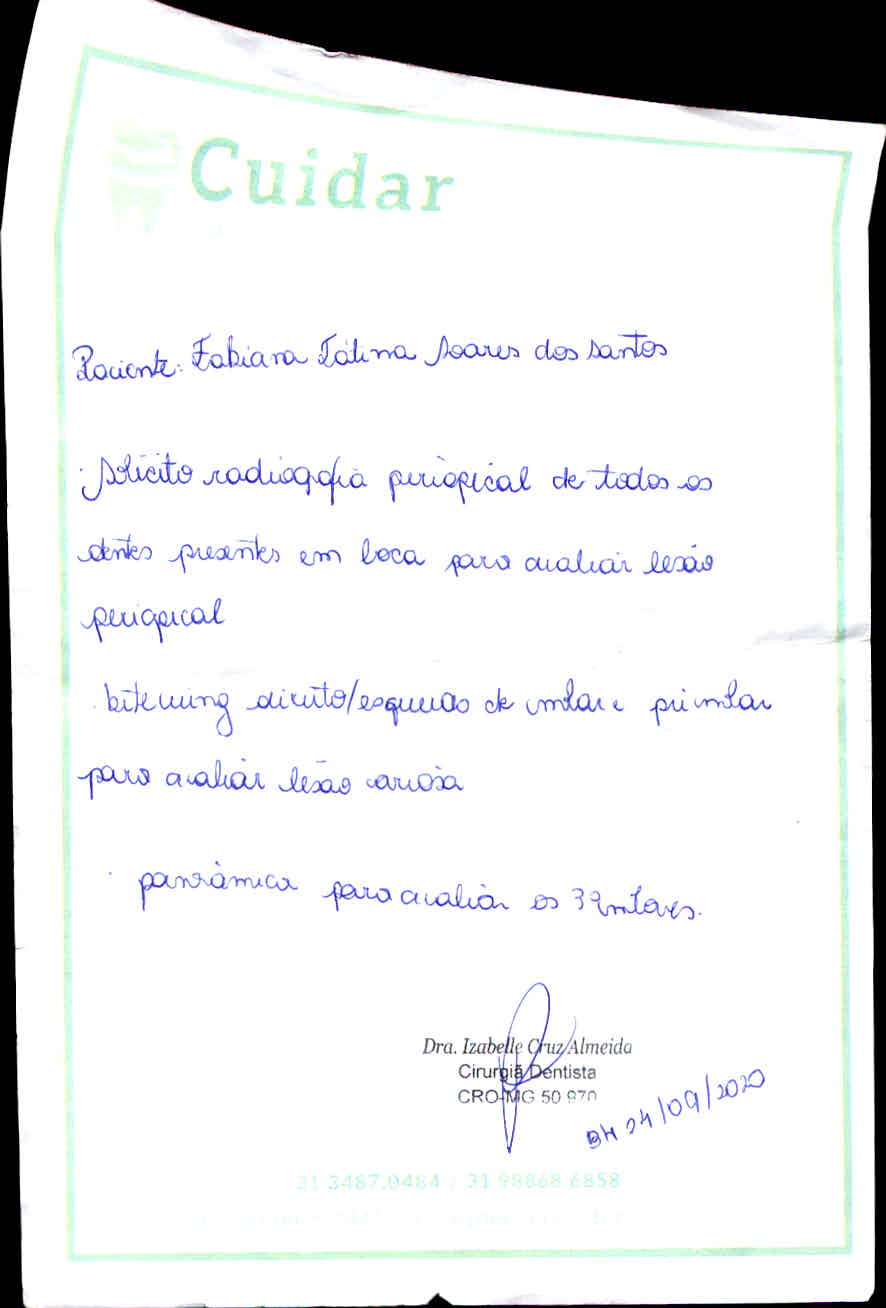 Cuidar
Paciente: Fabiana Fátima Soares dos Santos
· Solicito radiografia periapical de todos os
dentes presentes em boca para avaliar lesão
periapical
· bitewing direito/esquerdo de molar e pré molar
para avaliar lesão cariosa
· panorâmica para avaliar os 3ºs molares.
Dra. Izabelle Cruz Almeida
Cirurgiã Dentista
CRO-MG 50 970
BH 24/09/2020
31 3487.0484 / 31 98868 6858